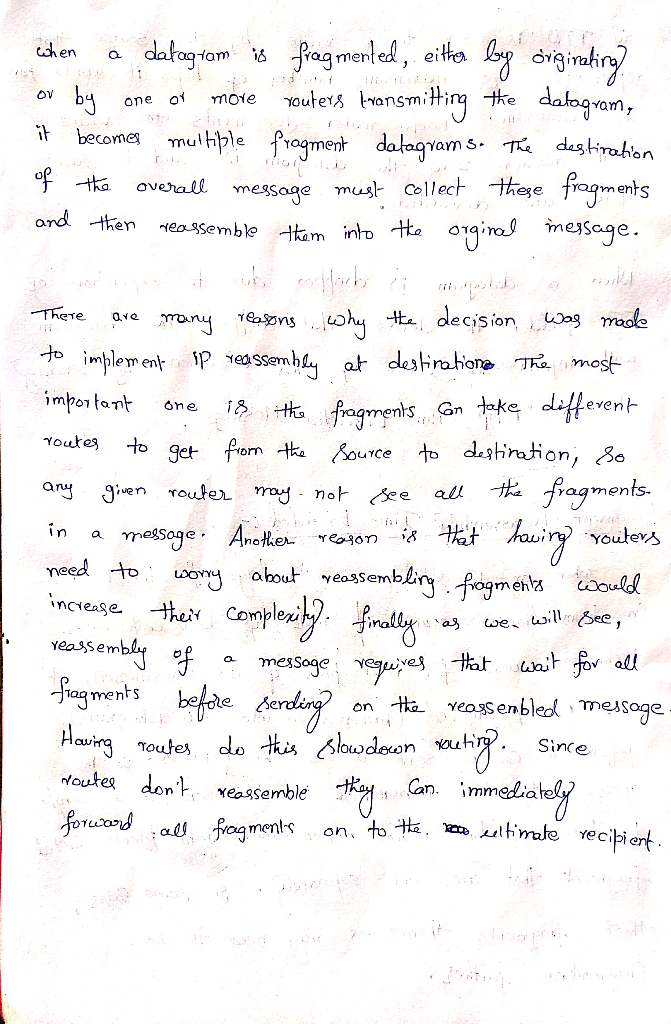 when a datagram is fragmented, either by originating
or by one or more routers transmitting the datagram,
it becomes multiple fragment datagrams. The destination
of the overall message must collect these fragments
and then reassemble them into the orginal message.
There are many reasons why the decision was made
to implement IP reassembly at destinations The most
important one is the fragments Can take different
routes to get from the Source to destination, So
any given router may not see all the fragments
in a message. Another reason is that having routers
need to worry about reassembling fragments would
increase their complexity. finally as we will See,
reassembly of a message requires that wait for all
fragments before sending on the reassembled message.
Having routes do this slowdown routing. Since
routes don't reassemble they Can immediately
forward all fragments on to the ultimate recipient.